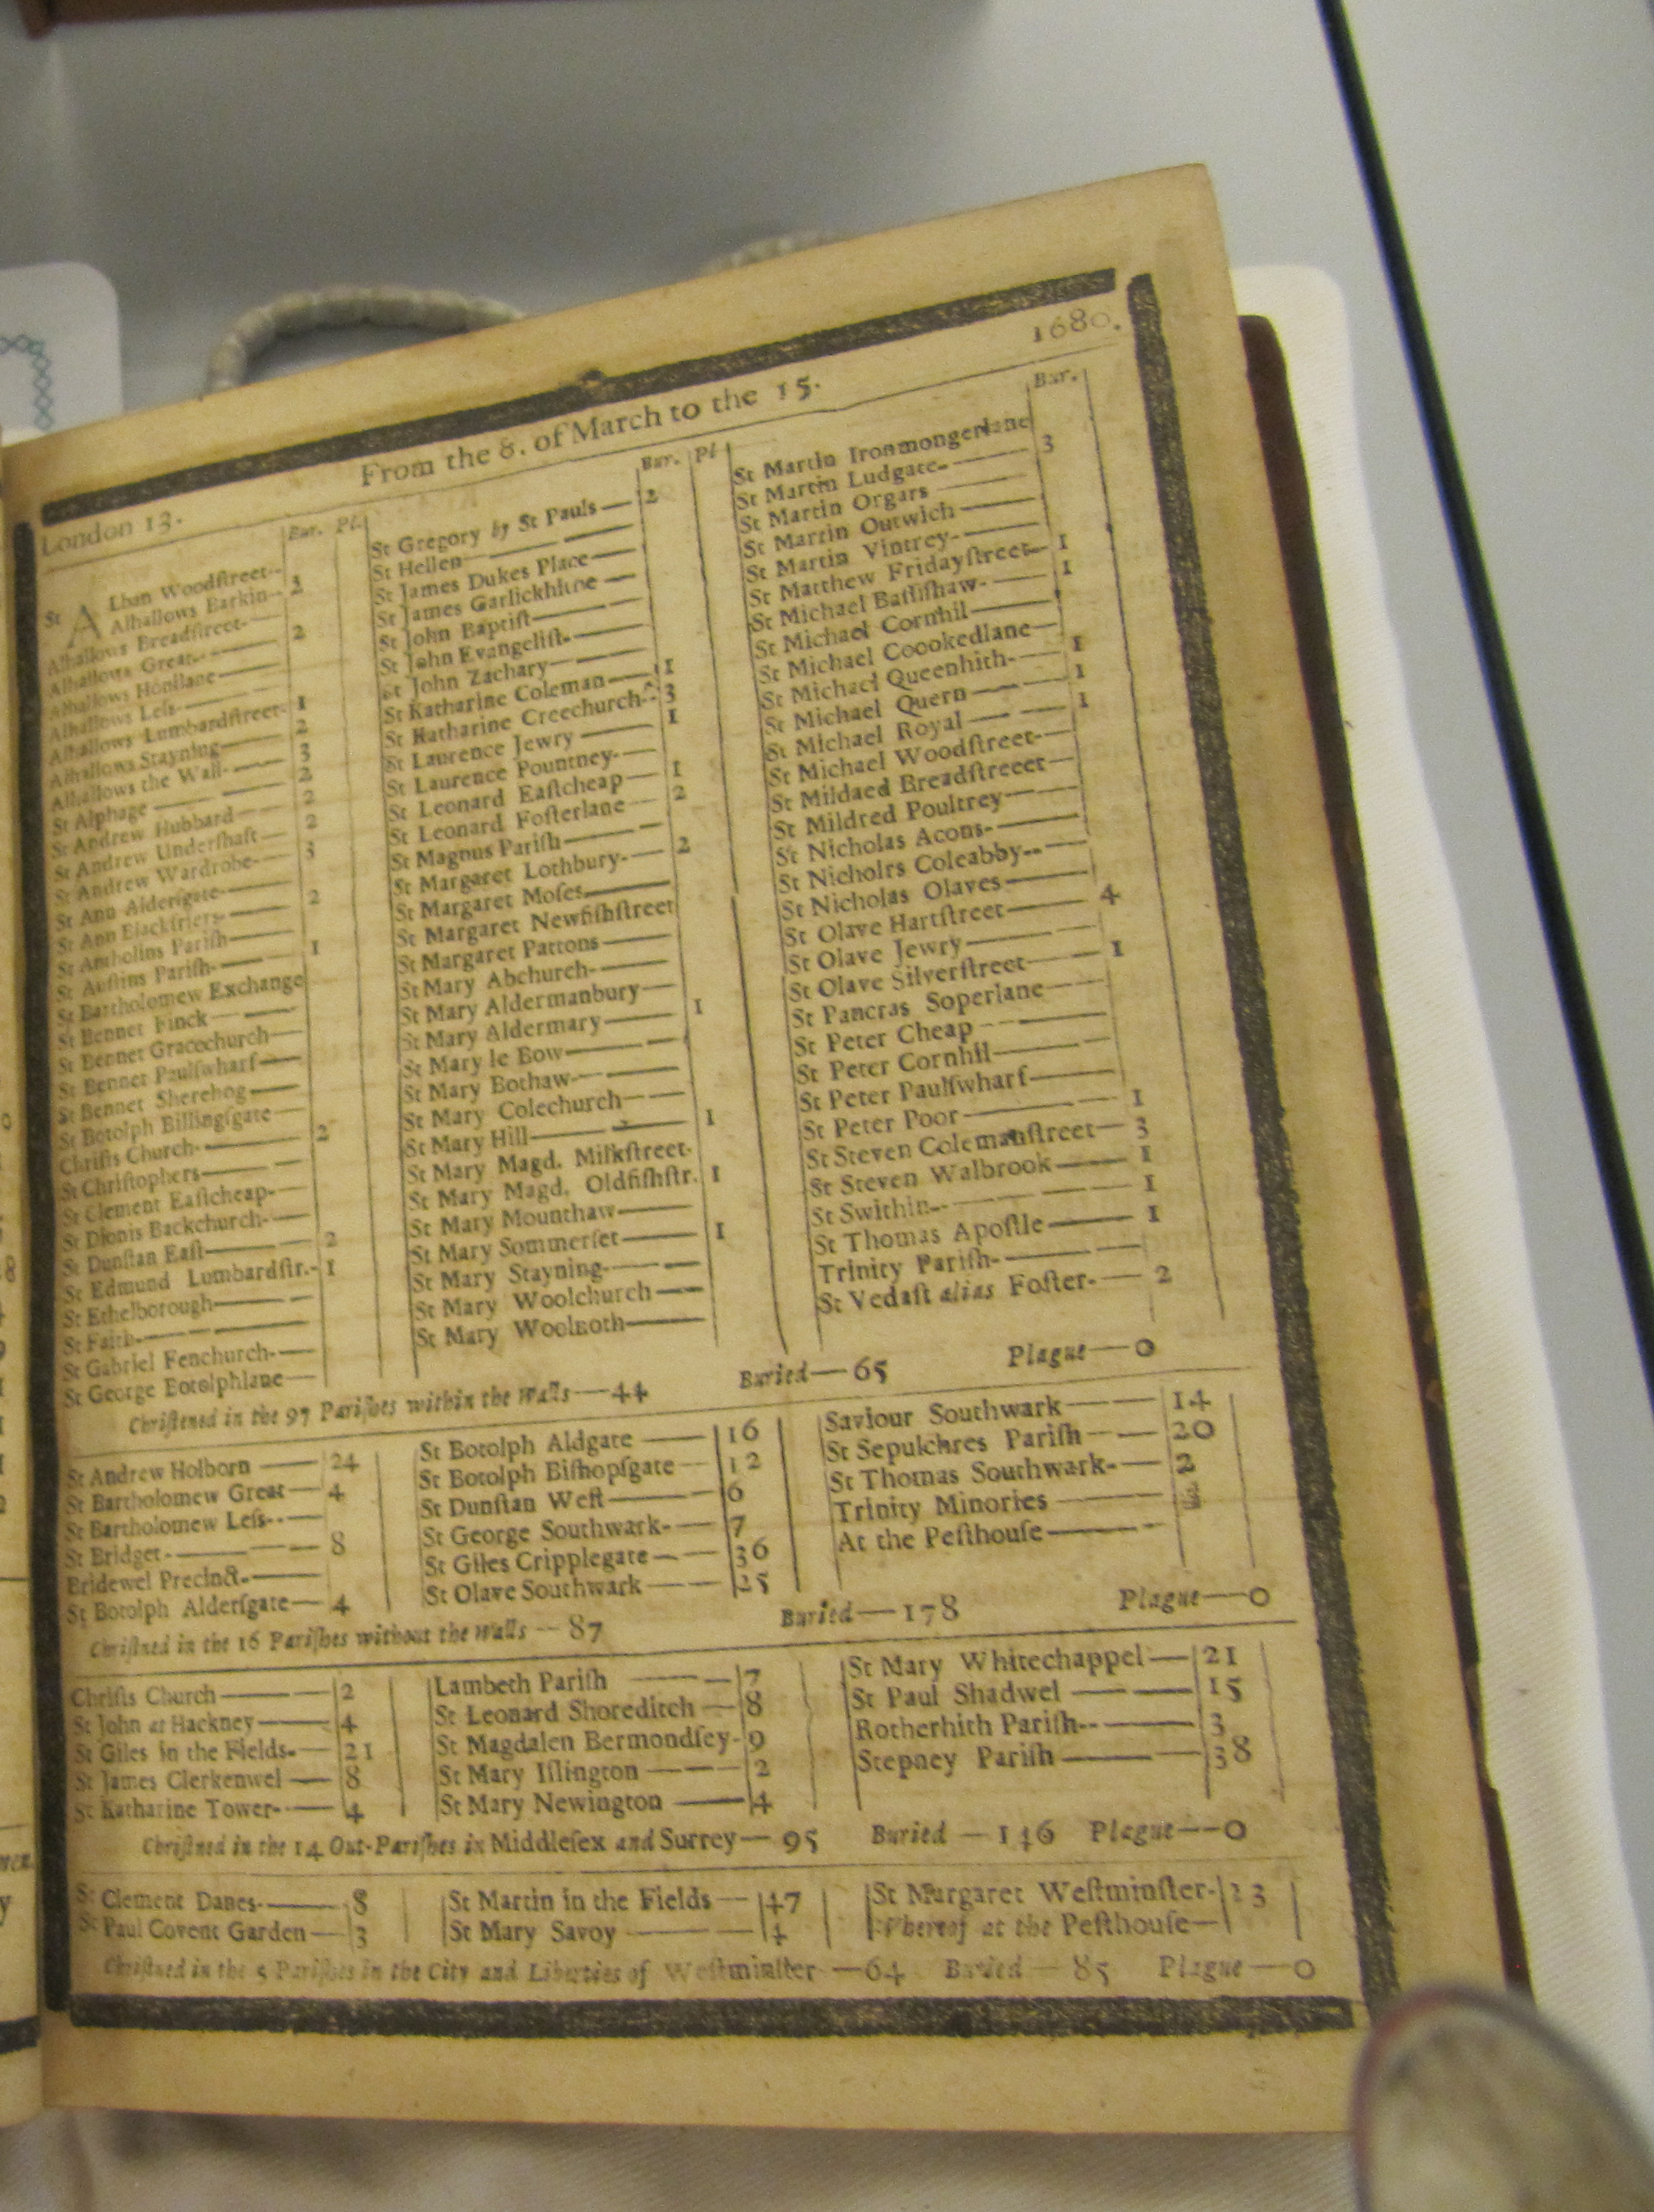 1680.
From the 8. of March to the 15.
London 13.
Bur. Pl.
St ALban Woodſtreet
Alhallows Barkin 3
Alhallows Breadſtreet
Alhallows Great 2
Alhallows Honilane
Alhallows Leſs
Alhallows Lumbardſtreet 1
Alhallows Stayning 2
Alhallows the Wall 3
St Alphage 2
St Andrew Hubbard 2
St Andrew Underſhaft 2
St Andrew Wardrobe 3
St Ann Alderſgate
St Ann Blackfriers 2
St Antholins Pariſh
St Auſtins Pariſh 1
St Bartholomew Exchange
St Bennet Finck
St Bennet Gracechurch
St Bennet Paulſwharf
St Bennet Sherehog
St Botolph Billingſgate
Chriſts Church 2
St Chriſtophers
St Clement Eaſtcheap
St Dionis Backchurch
St Dunſtan Eaſt 2
St Edmund Lumbardſtr. 1
St Ethelborough
St Faith
St Gabriel Fenchurch
St George Botolphlane
Bur. Pl
St Gregory by St Pauls 2
St Hellen
St James Dukes Place
St James Garlickhithe
St John Baptiſt
St John Evangeliſt
St John Zachary
St Katharine Coleman 1
St Katharine Creechurch 3
St Laurence Jewry 1
St Laurence Pountney
St Leonard Eaſtcheap 1
St Leonard Foſterlane 2
St Magnus Pariſh
St Margaret Lothbury 2
St Margaret Moſes
St Margaret Newfiſhſtreet
St Margaret Pattons
St Mary Abchurch
St Mary Aldermanbury
St Mary Aldermary 1
St Mary le Bow
St Mary Bothaw
St Mary Colechurch
St Mary Hill 1
St Mary Magd. Milkſtreet
St Mary Magd. Oldfiſhſtr. 1
St Mary Mounthaw
St Mary Sommerſet 1
St Mary Stayning
St Mary Woolchurch
St Mary Woolnoth
Bur.
St Martin Ironmongerlane
St Martin Ludgate 3
St Martin Orgars
St Martin Outwich
St Martin Vintrey
St Matthew Fridayſtreet 1
St Michael Baſſiſhaw 1
St Michael Cornhil
St Michael Coookedlane
St Michael Queenhith 1
St Michael Quern 1
St Michael Royal 1
St Michael Woodſtreet
St Mildaed Breadſtreeet
St Mildred Poultrey
St Nicholas Acons
St Nicholrs Coleabby
St Nicholas Olaves
St Olave Hartſtreet 4
St Olave Jewry
St Olave Silverſtreet 1
St Pancras Soperlane
St Peter Cheap
St Peter Cornhil
St Peter Paulſwharf
St Peter Poor 1
St Steven Colemanſtreet 3
St Steven Walbrook 1
St Swithin 1
St Thomas Apoſtle 1
Trinity Pariſh
St Vedaſt alias Foſter 2
Chriſtened in the 97 Pariſhes within the Walls—44 Buried—65 Plague—0
St Andrew Holborn 24
St Bartholomew Great 4
St Bartholomew Leſs
St Bridget 8
Bridewel Precinct
St Botolph Alderſgate 4
St Botolph Aldgate 16
St Botolph Biſhopſgate 12
St Dunſtan Weſt 6
St George Southwark 7
St Giles Cripplegate 36
St Olave Southwark 25
Saviour Southwark 14
St Sepulchres Pariſh 20
St Thomas Southwark 2
Trinity Minories
At the Peſthouſe
Chriſtned in the 16 Pariſhes without the Walls—87 Buried—178 Plague—0
Chriſts Church 2
St John at Hackney 4
St Giles in the Fields 21
St James Clerkenwel 8
St Katharine Tower 4
Lambeth Pariſh 7
St Leonard Shoreditch 8
St Magdalen Bermondſey 9
St Mary Iſlington 2
St Mary Newington 4
St Mary Whitechappel 21
St Paul Shadwel 15
Rotherhith Pariſh 3
Stepney Pariſh 38
Chriſtned in the 14 Out-Pariſhes in Middleſex and Surrey—95 Buried—146 Plague—0
St Clement Danes 8
St Paul Covent Garden 3
St Martin in the Fields 47
St Mary Savoy 4
St Margaret Weſtminſter 23
Whereof at the Peſthouſe
Chriſtned in the 5 Pariſhes in the City and Liberties of Weſtminſter—64 Buried—85 Plague—0